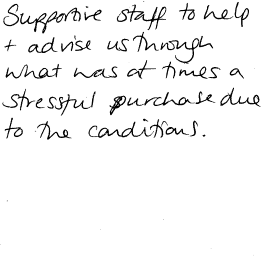 Supportive staff to help
+ advise us through
what was at times a
stressful purchase due
to the conditions.